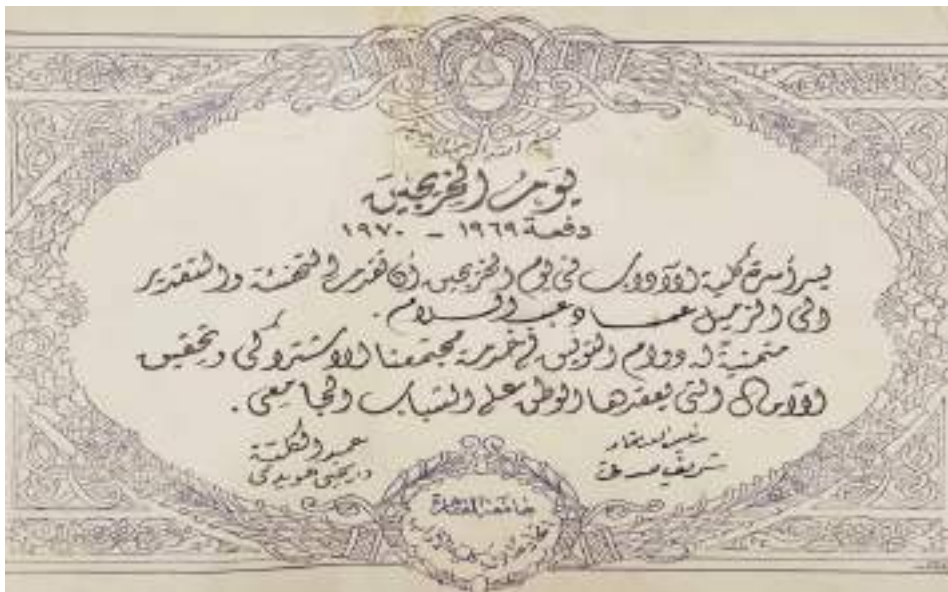 بسم الله الرحمن الرحيم
يوم الخريجين
دفعة ١٩٦٩ - ١٩٧٠
يسر أسرة كلية الآداب فى يوم الخريجين أن تقدم التهنئة والتقدير
الى الزميل عماد عبد السلام.
متمنية له دوام التوفيق في خدمة مجتمعنا الاشتراكى وتحقيق
الآمال التى يعقدها الوطن على الشباب الجامعى.
رئيس الاتحاد
شريف
عميد الكلية
د. يحيى هويدى
جامعة القاهرة